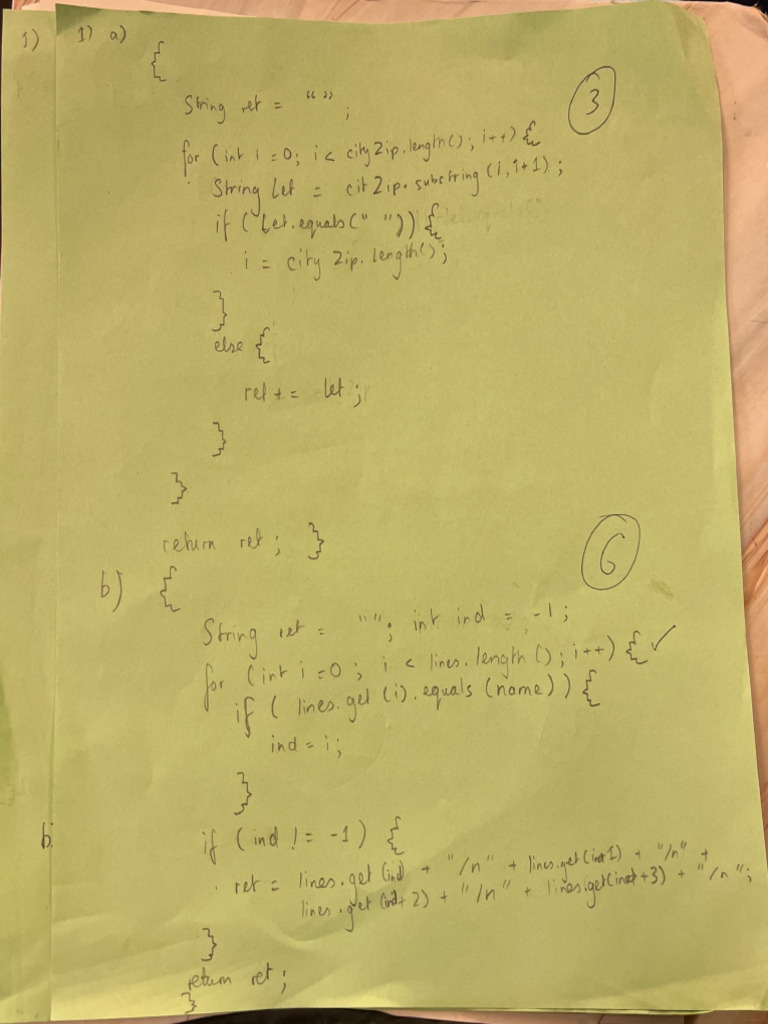 1)
1) a)
{
String ret = "";
③
for (int i = 0; i < cityZip.length(); i++) {
String let = citZip.substring (i, i+1);
if (let.equals(" ")) {
i = cityZip.length();
}
else {
ret += let;
}
}
return ret; }
b) {
⑥
String ret = ""; int ind = -1;
for (int i = 0; i < lines.length(); i++) { ✓
if ( lines.get (i).equals (name)) {
ind = i;
}
b
if (ind != -1) {
ret = lines.get (ind) + "/n" + lines.get(ind+1) + "/n" +
lines.get (ind+2) + "/n" + lines.get(ind+3) + "/n";
}
return ret;
}